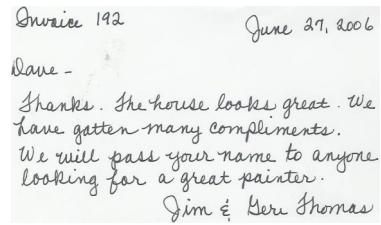 Invoice 192
June 27, 2006
Dave -
Thanks. The house looks great. We
have gotten many compliments.
We will pass your name to anyone
looking for a great painter.
Jim & Geri Thomas